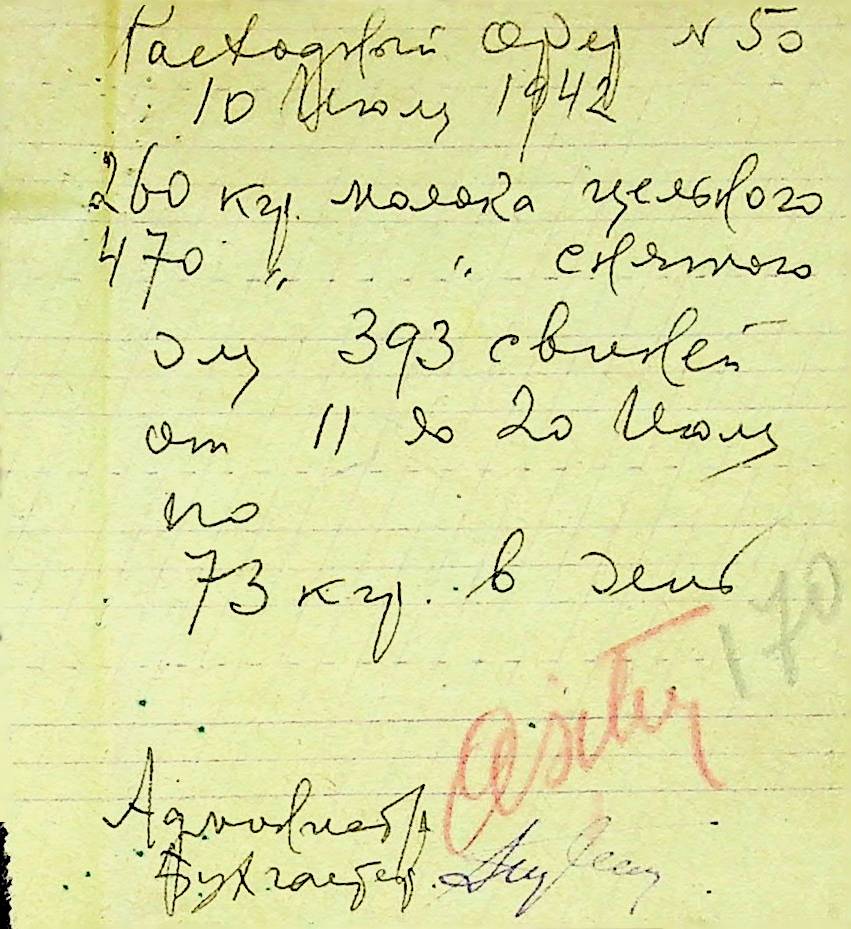 Расходный Ордер N 50
10 Июля 1942
260 кгр. молока цельного
470 " " снятого
для 393 свиней
от 11 до 20 Июля
по
73 кгр. в день
170
Администр
Бухгалтер.